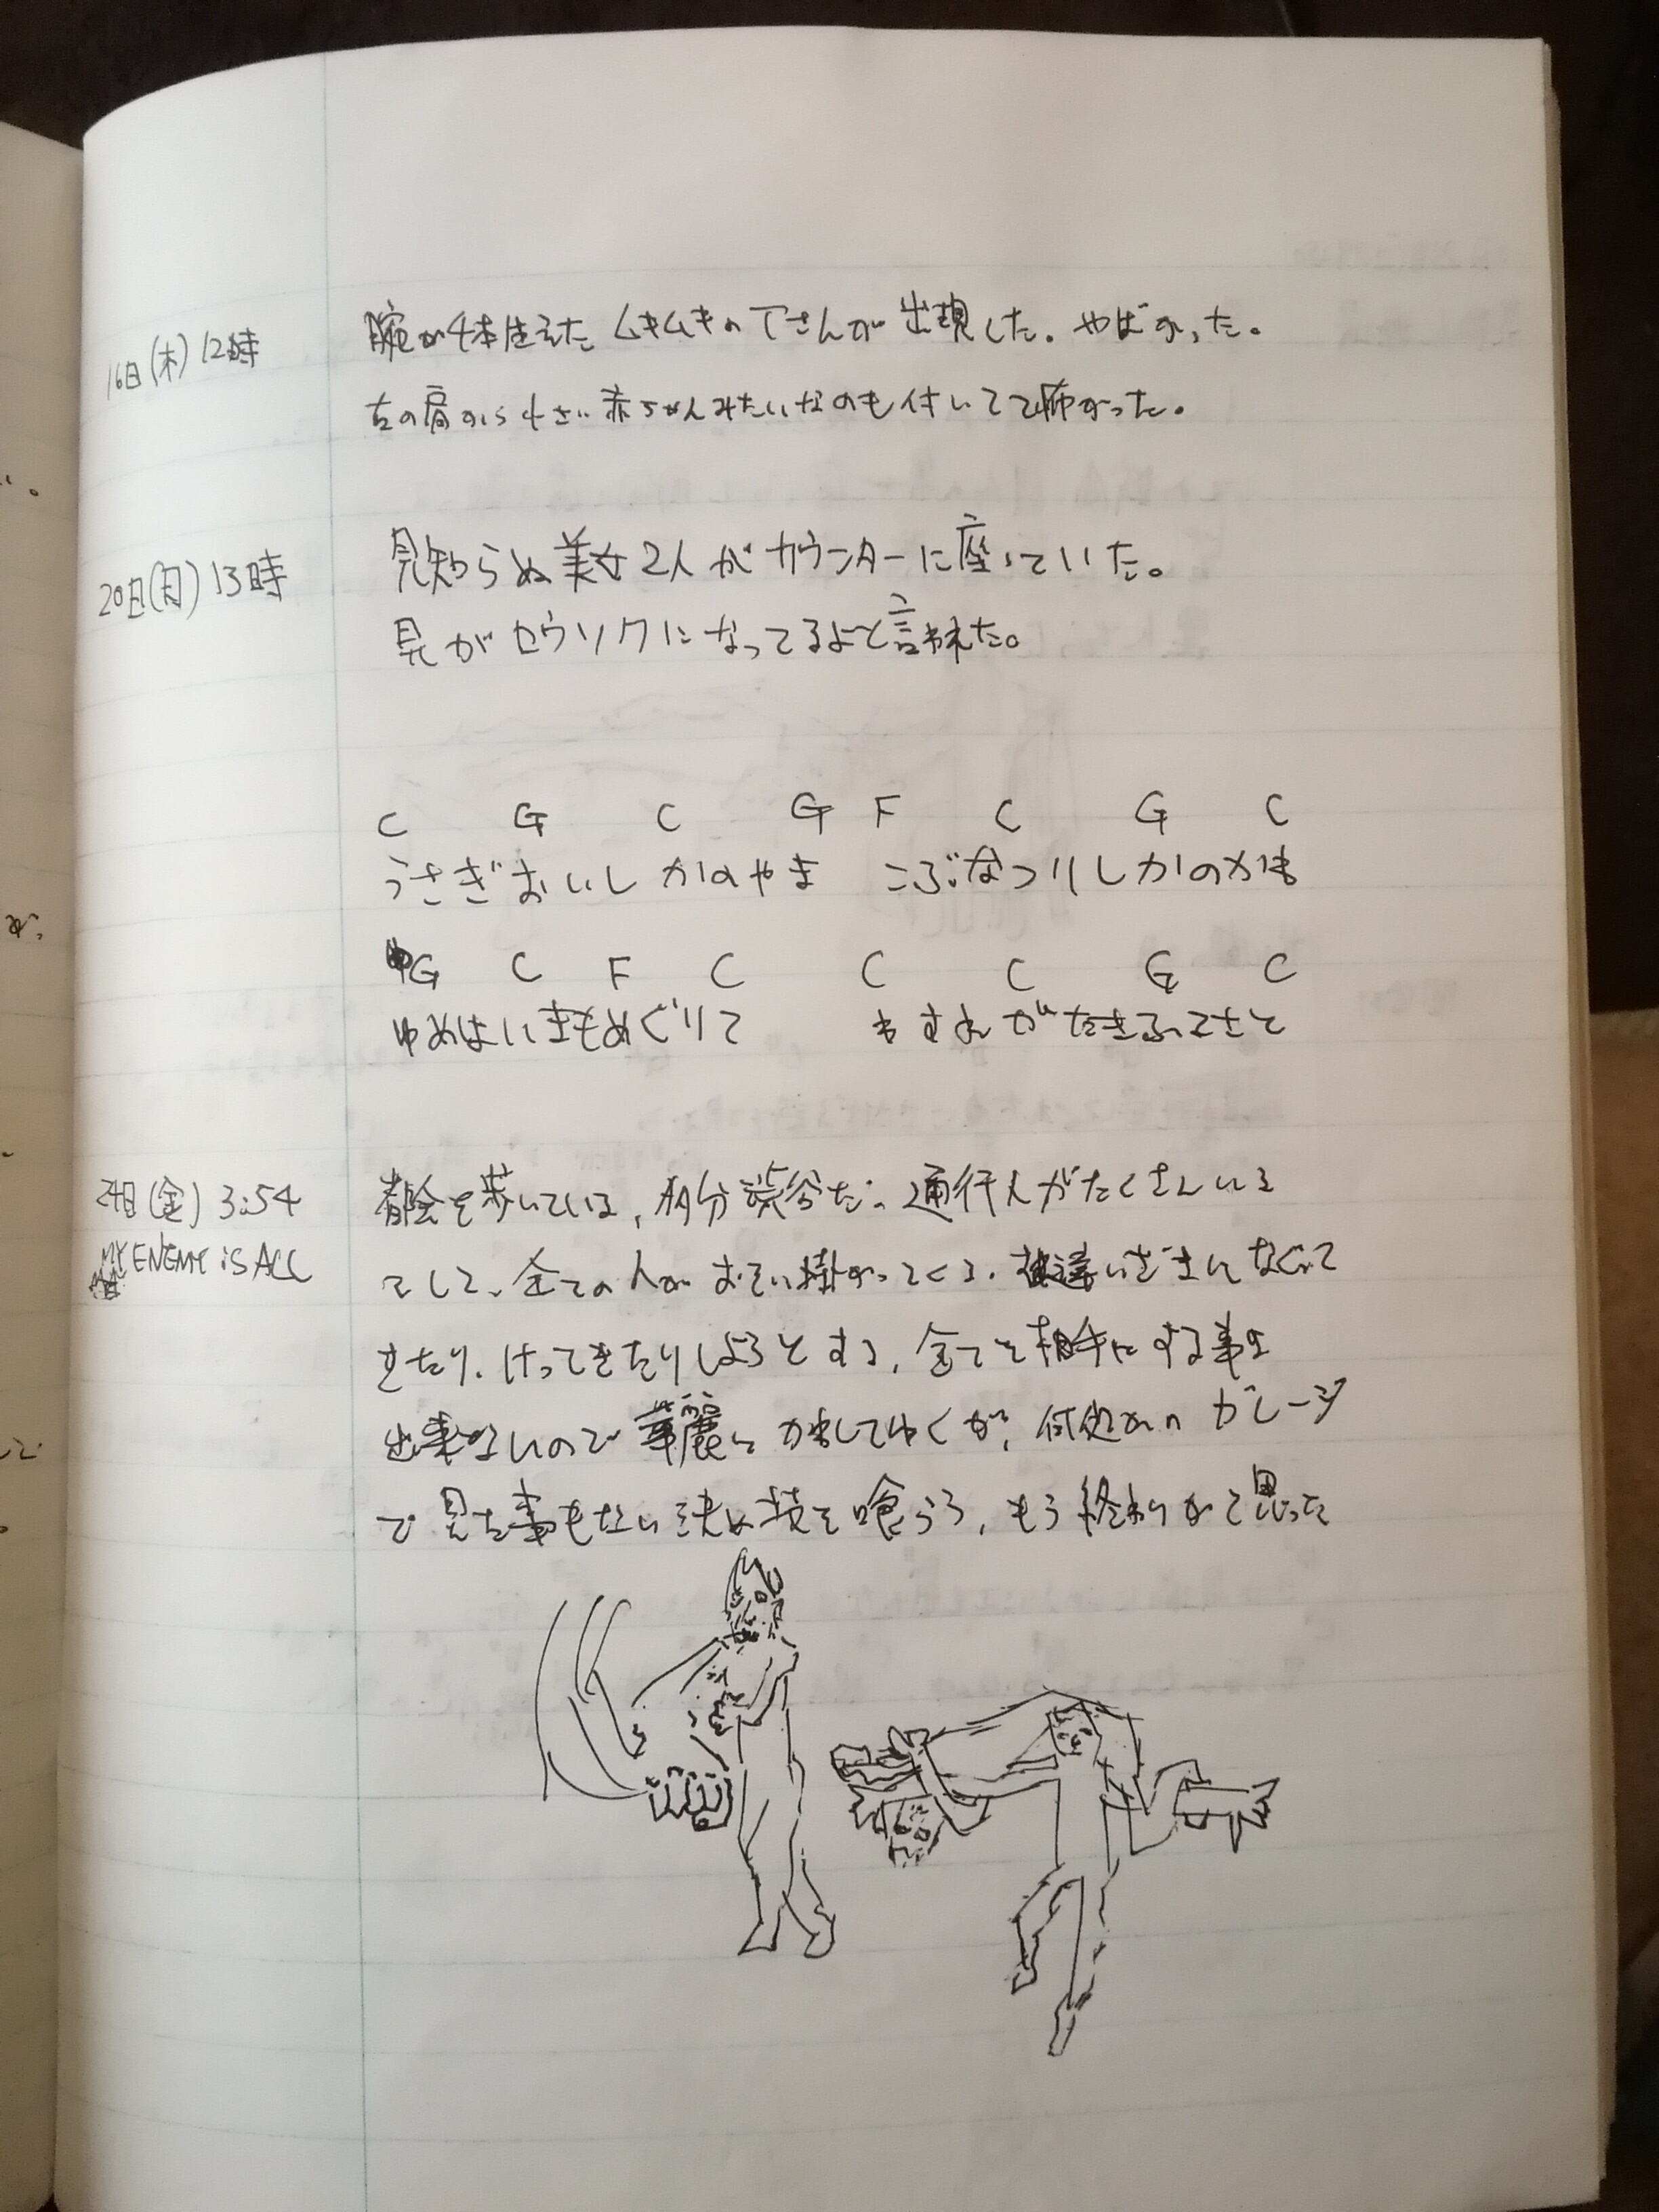 16日(木)12時
腕が4本生えたムキムキのTさんが出現した。やばかった。
左の肩から小さい赤ちゃんみたいなのも付いてて怖かった。
20日(月)13時
見知らぬ美女2人がカウンターに座っていた。
兄がセウソクになってるよと言われた。
C G C G F C G C
うさぎおいしかのやま こぶなつりしかのかわ
G C F C C C G C
ゆめはいまもめぐりて わすれがたきふるさと
24日(金)3:54
MY ENEMY iS ALL
都会を歩いている,多分渋谷だ。通行人がたくさんいる
そして、全ての人がおそい掛かってくる.いざまになぐって
きたり.けってきたりしようとする,全てを相手にする事は
出来ないので華麗にかわしてゆくが,何処かのガレージ
で見た事もない決め技を喰らう,もう終わりかと思った